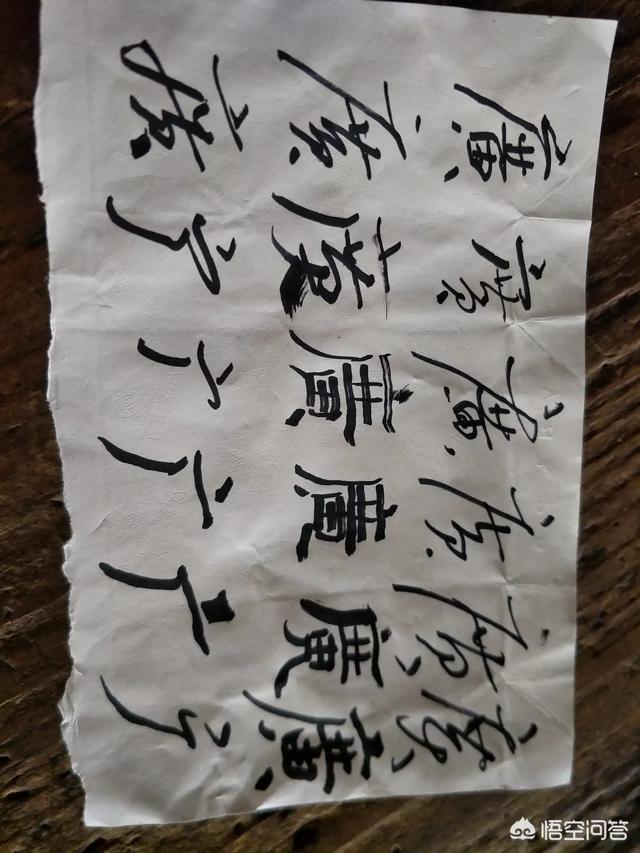 廣廣廣廣廣廣
廣廣廣廣廣廣
廣广广广广广
悟空问答